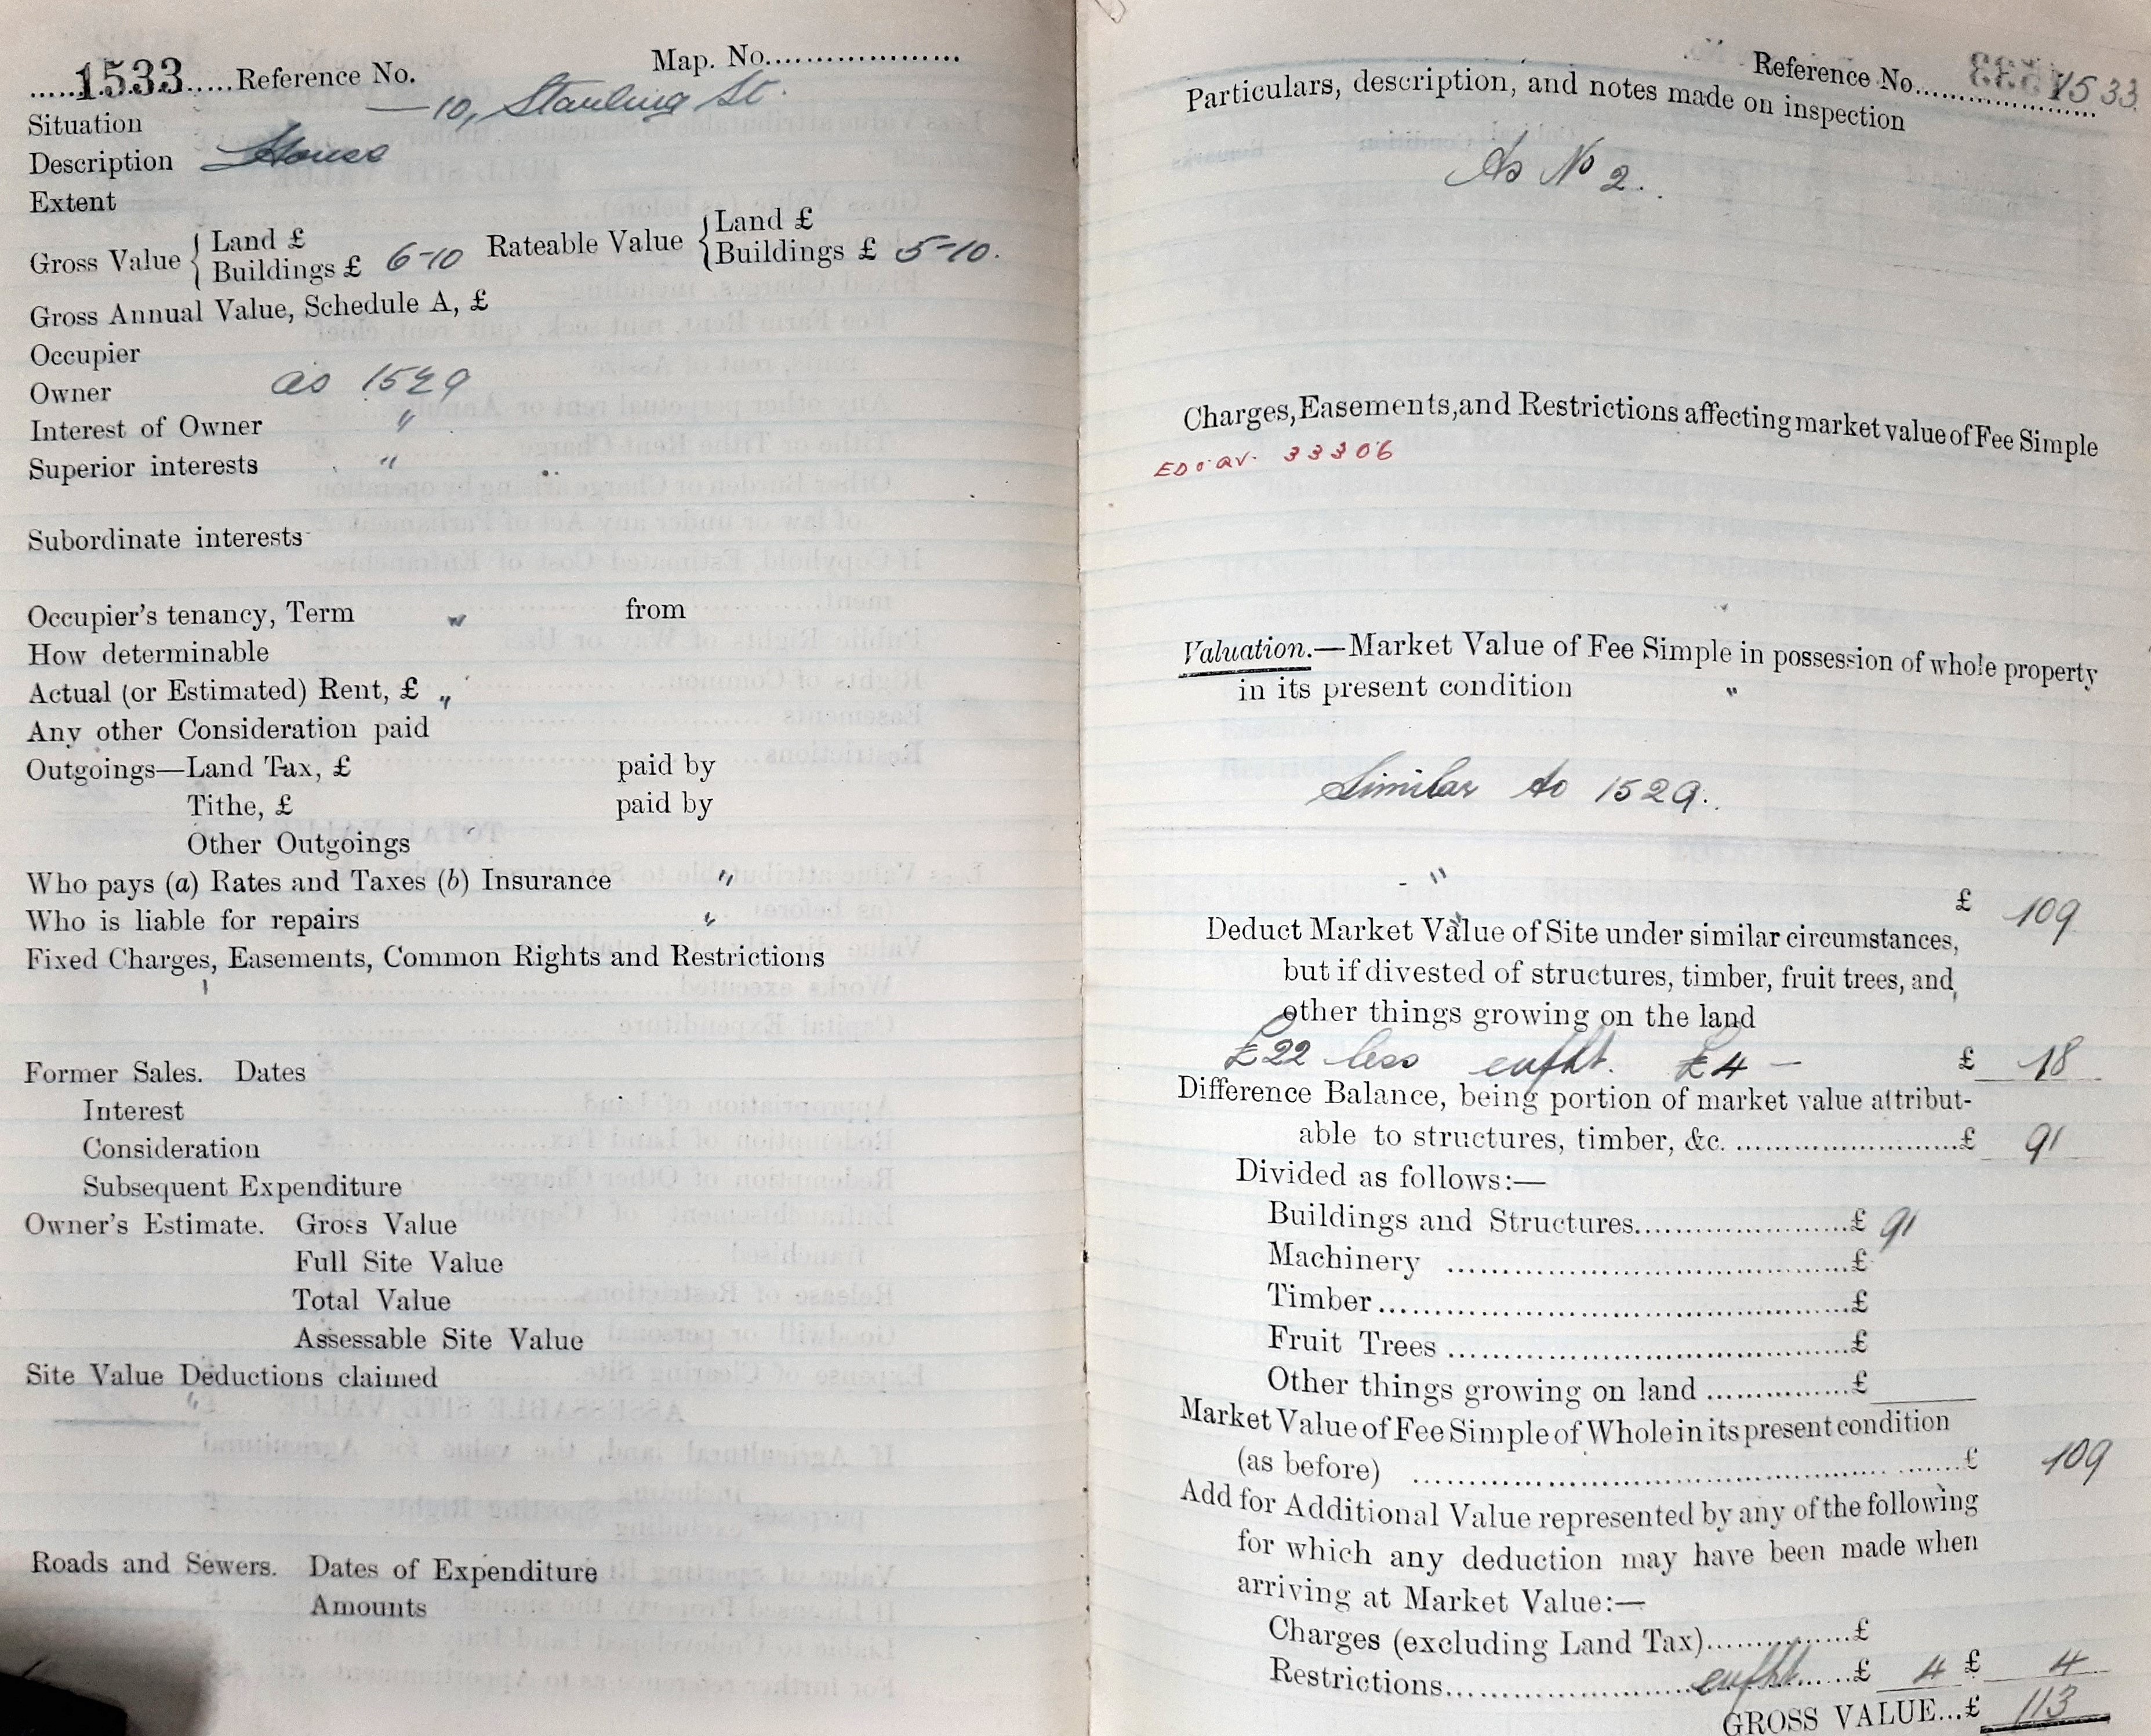 .....1533.....Reference No.
Map. No...................
Situation —10, Stanling St.
Description House
Extent
Gross Value { Land £
Buildings £ 6-10
Rateable Value { Land £
Buildings £ 5-10.
Gross Annual Value, Schedule A, £
Occupier
Owner as 1529
Interest of Owner "
Superior interests "
Subordinate interests
Occupier's tenancy, Term " from
How determinable
Actual (or Estimated) Rent, £ "
Any other Consideration paid
Outgoings—Land Tax, £ paid by
Tithe, £ paid by
Other Outgoings
Who pays (a) Rates and Taxes (b) Insurance "
Who is liable for repairs "
Fixed Charges, Easements, Common Rights and Restrictions
Former Sales. Dates
Interest
Consideration
Subsequent Expenditure
Owner's Estimate. Gross Value
Full Site Value
Total Value
Assessable Site Value
Site Value Deductions claimed
"
Roads and Sewers. Dates of Expenditure
Amounts
Reference No. 1533
Particulars, description, and notes made on inspection
As No 2.
Charges, Easements, and Restrictions affecting market value of Fee Simple
33306
Valuation.—Market Value of Fee Simple in possession of whole property
in its present condition "
Similar to 1529.
"
£ 109
Deduct Market Value of Site under similar circumstances,
but if divested of structures, timber, fruit trees, and
other things growing on the land
£22 less £4 — £ 18
Difference Balance, being portion of market value attribut-
able to structures, timber, &c. ........................£ 91
Divided as follows:—
Buildings and Structures.......................£ 91
Machinery ............................................£
Timber...................................................£
Fruit Trees ...........................................£
Other things growing on land ................£
Market Value of Fee Simple of Whole in its present condition
(as before) .............................................£ 109
Add for Additional Value represented by any of the following
for which any deduction may have been made when
arriving at Market Value:—
Charges (excluding Land Tax)................£
Restrictions..............................£ 4 £ 4
GROSS VALUE...£ 113